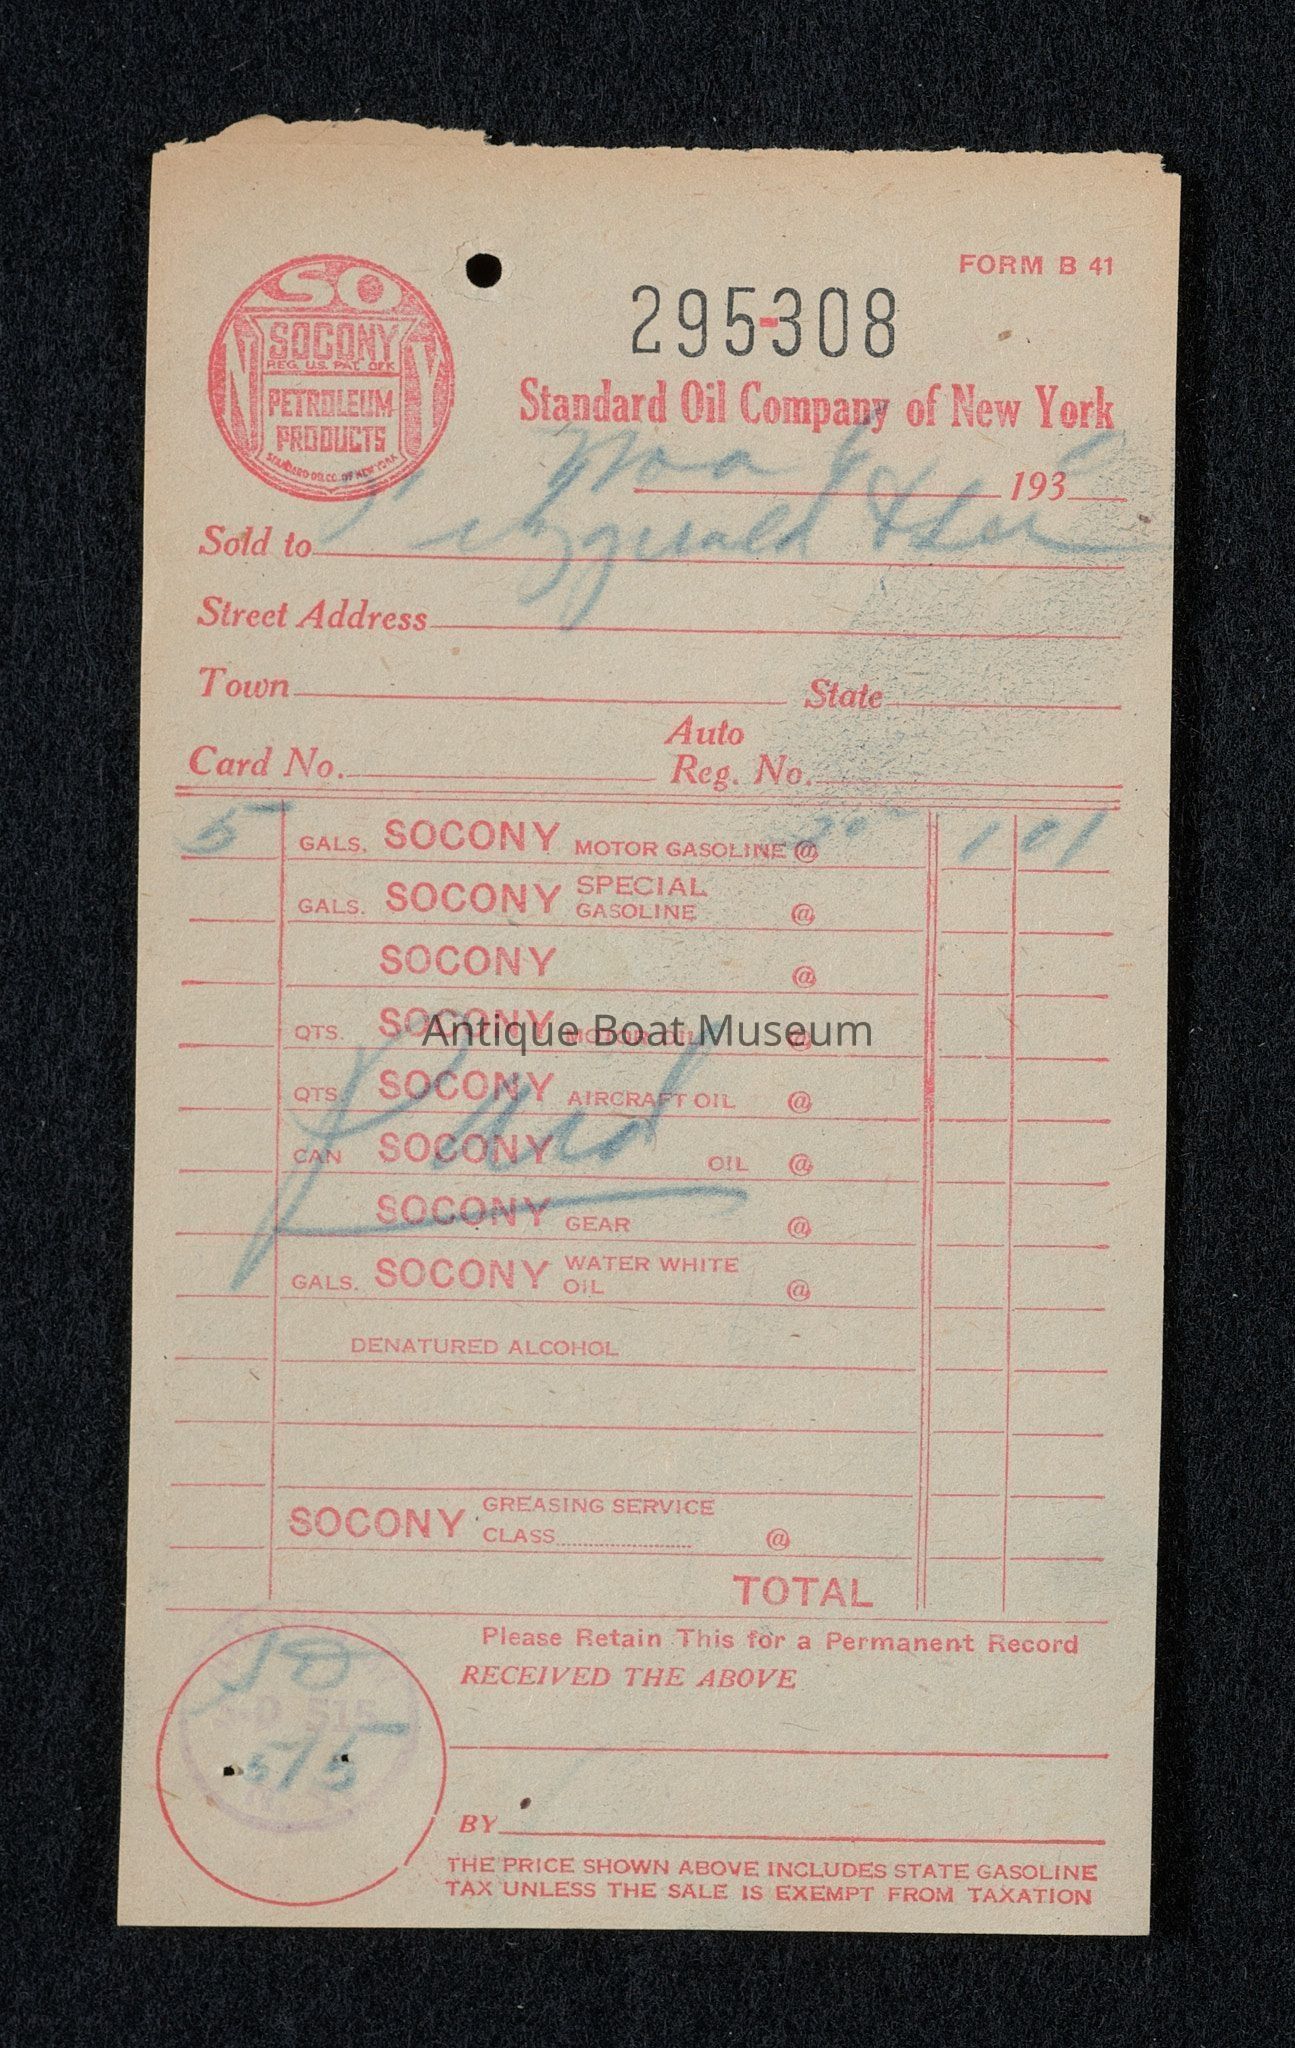 FORM B 41
295-308
SO
SOCONY
REG. U.S. PAT. OFF.
PETROLEUM
PRODUCTS
STANDARD OIL CO. OF NEW YORK
Standard Oil Company of New York
193
Sold to Fitzgerald & Lee
Street Address
Town State
Card No. Auto Reg. No.
5 GALS. SOCONY MOTOR GASOLINE @ 20 1 01
GALS. SOCONY SPECIAL GASOLINE @
SOCONY @
QTS. SOCONY MOTOR OIL @
Antique Boat Museum
QTS. SOCONY AIRCRAFT OIL @
Paid
CAN SOCONY OIL @
SOCONY GEAR @
GALS. SOCONY WATER WHITE OIL @
DENATURED ALCOHOL
SOCONY GREASING SERVICE CLASS @
TOTAL
Please Retain This for a Permanent Record
RECEIVED THE ABOVE
515
515
BY
THE PRICE SHOWN ABOVE INCLUDES STATE GASOLINE
TAX UNLESS THE SALE IS EXEMPT FROM TAXATION